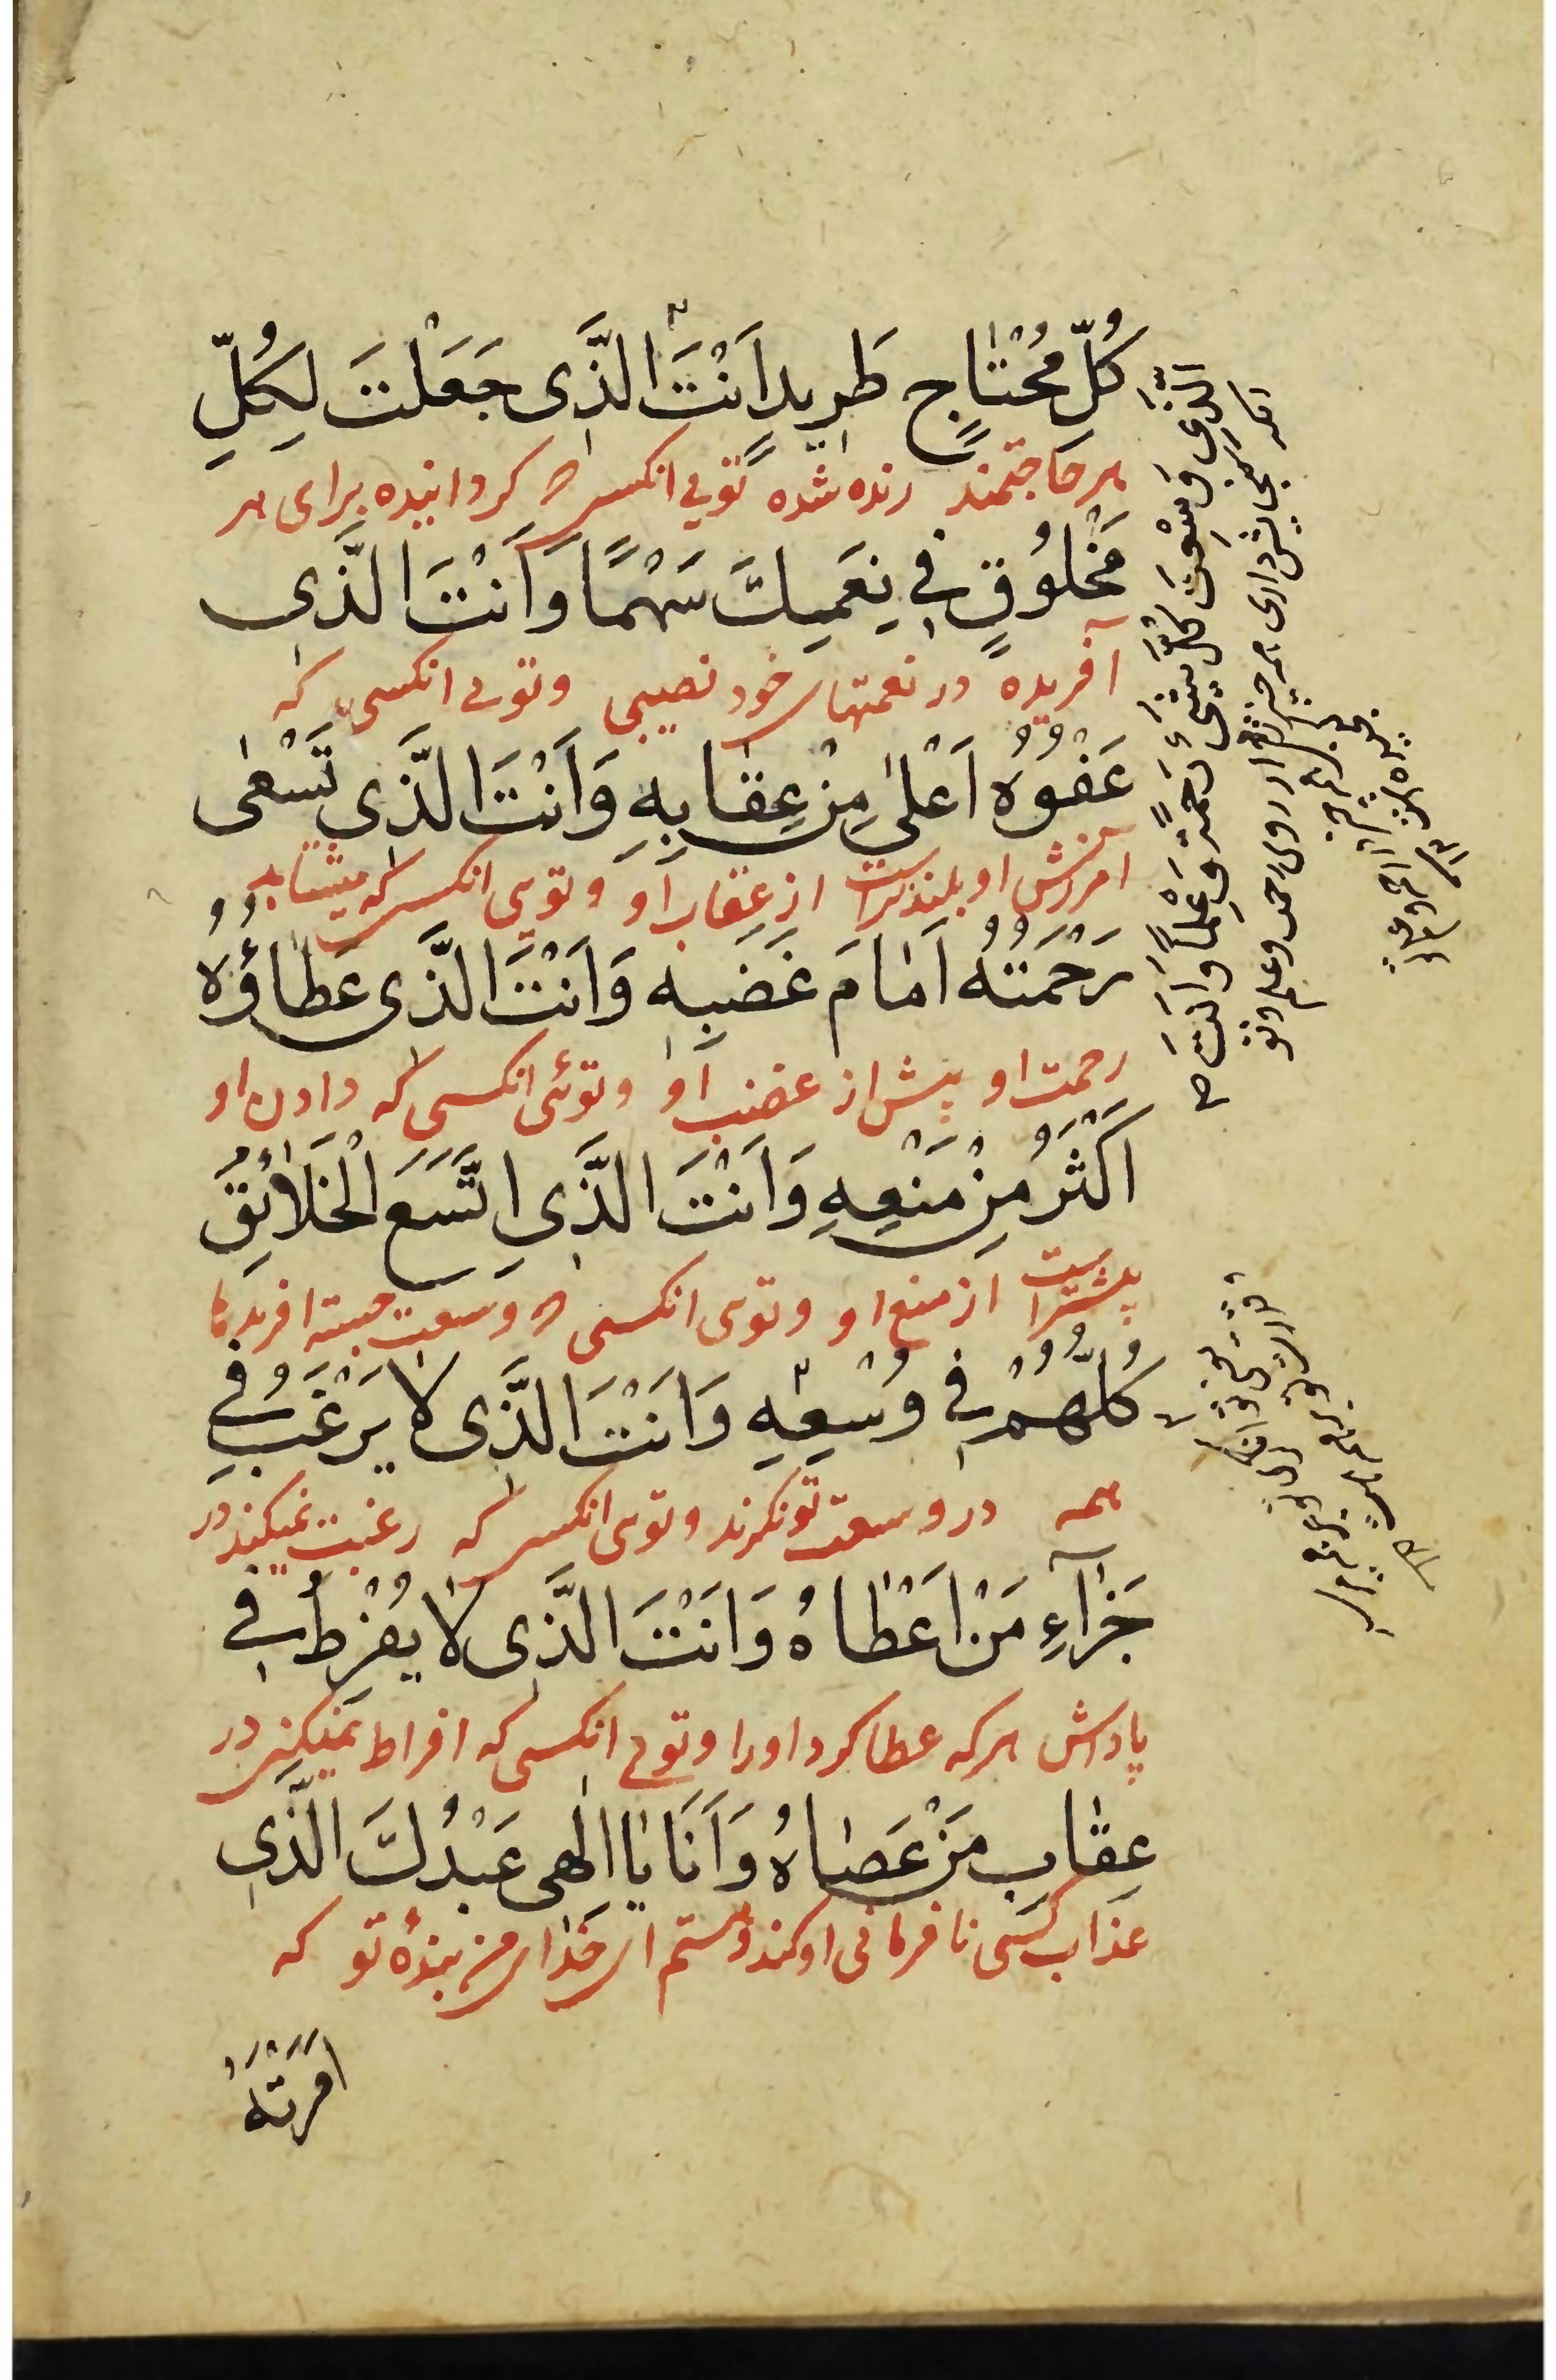 كُلِّ مُحْتٰاجٍ طَرِيدٍ اَنْتَ الَّذى جَعَلْتَ لِكُلِّ
هر حاجتمند رنده شده تویی انکسی که کردانیده برای هر
مَخْلُوقٍ فى نِعَمِكَ سَهْمًا وَاَنْتَ الَّذى
آفریده در نعمتهای خود نصیبی وتویی انکسی که
عَفْوُهُ اَعْلىٰ مِنْ عِقٰابِهِ وَاَنْتَ الَّذى تَسْعىٰ
آمرزش او بلندتراست از عقاب او وتویی انکسی که میشتابد
رَحْمَتُهُ اَمٰامَ غَضَبِهِ وَاَنْتَ الَّذى عَطٰاؤُهُ
رحمت او پیش از غضب او وتوئی انکسی که دادن او
اَكْثَرُ مِنْ مَنْعِهِ وَاَنْتَ الَّذِى اتَّسَعَ الْخَلٰائِقُ
بیشتراست از منع او وتویی انکسی که وسعت جسته افریدها
كُلُّهُمْ فى وُسْعِهِ وَاَنْتَ الَّذى لا يَرْغَبُ فى
همه در وسعت تونکرند وتویی انکسی که رغبت نمیکند در
جَزٰآءِ مَنْ اَعْطٰاهُ وَاَنْتَ الَّذى لا يُفْرِطُ فى
پاداش هرکه عطا کرد اورا وتویی انکسی که افراط نمیکنی در
عِقٰابِ مَنْ عَصٰاهُ وَاَنَا يٰا اِلٰهى عَبْدُكَ الَّذى
عذاب کسی نافرمانی اوکند ومنستم ای خدای من بندهٔ تو که
اَمَرْتَهُ
الَّذى وَسِعْتَ كُلَّ شَىْءٍ رَحْمَةً وَعِلْمًا وَاَنْتَ
انکه کنجایش داری همه چیز را از روی رحمت وعلم وتو